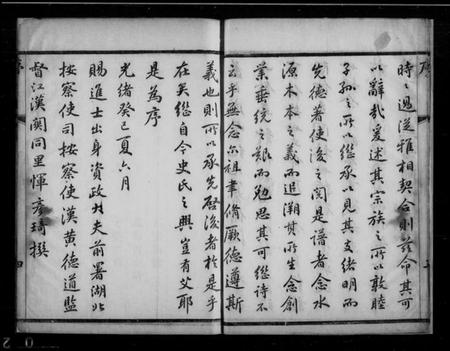 時之過從雅相契合則茲命其可
以辭哉爰述其宗族之所以敦睦
子孫之所以繼承以見其支緒明而
先德著使後之閱是譜者念水
源木本之義而追溯其所生念創
業垂統之艱而勉思其可繼詩不
云乎無念尔祖聿脩厥德遵斯
義也則所以承先啓後者於是乎
在矣繼自今史氏之興豈有艾耶
是為序
光緒癸巳夏六月
賜進士出身資政大夫前署湖北
按察使司按察使漢黄德道監
督江漢關同里惲彥琦撰
序
四
0 2